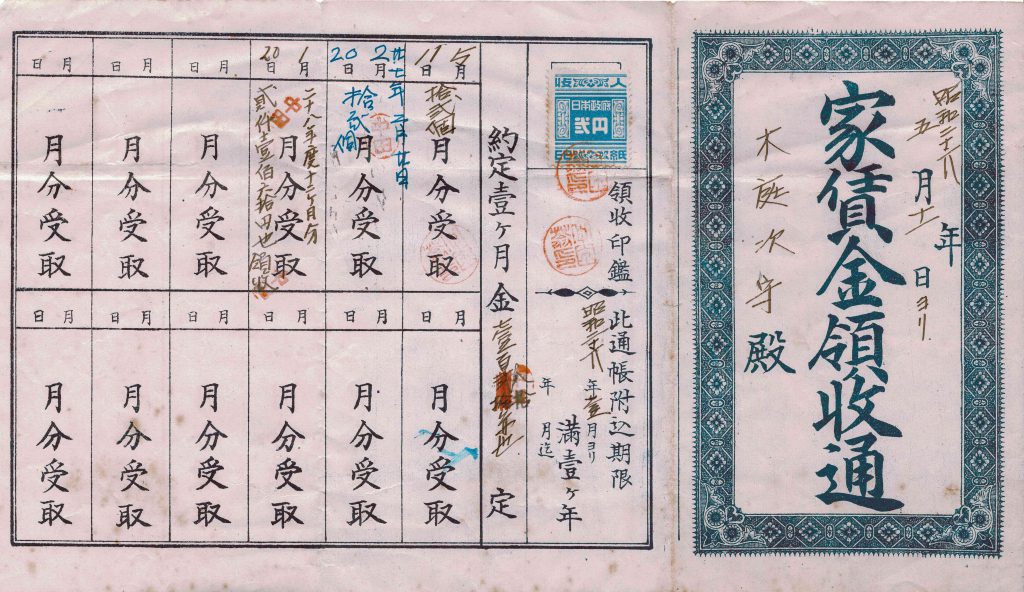 家賃金領收通
昭和二十八年
五月十一日ヨリ
木庭次守殿
領收印鑑
此通帳附込期限
昭和二十八年壹月ヨリ
年 月迄
満壹ヶ年
収入
日本政府
弐円
印紙
約定壹ヶ月金壹百
定
5月11日
拾弐個
月分受取
廿七年二月廿日
2月20日
拾弐個
月分受取
1月20日
二十八年度十二ヶ月分
月分受取
弐仟壹佰拾円也領收
月日
月分受取
月日
月分受取
月日
月分受取
月日
月分受取
月日
月分受取
月日
月分受取
月日
月分受取
月日
月分受取
月分受取